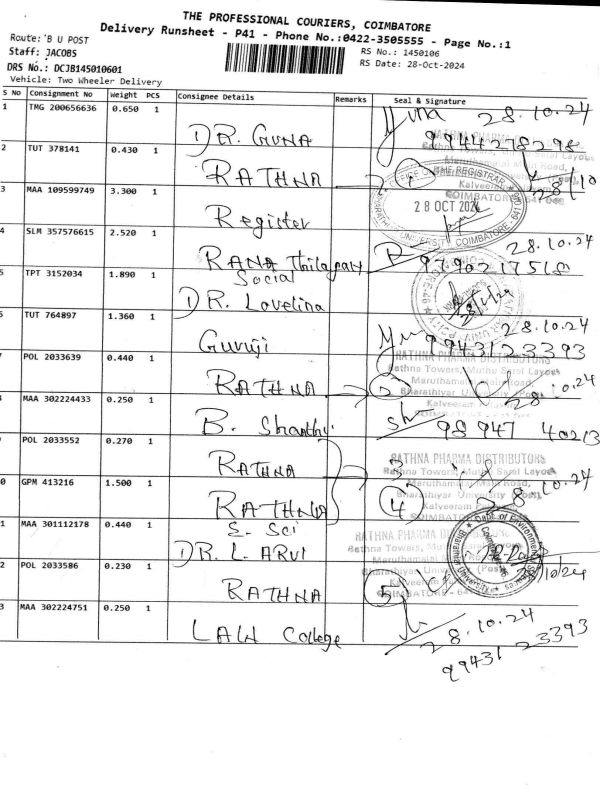 THE PROFESSIONAL COURIERS, COIMBATORE
Delivery Runsheet - P41 - Phone No.:0422-3505555 - Page No.:1
Route: B U POST
Staff: JACOBS
RS No.: 1450106
DRS No.: DCJB145010601
RS Date: 28-Oct-2024
Vehicle: Two Wheeler Delivery
S No Consignment No Weight PCS Consignee Details Remarks Seal & Signature
1 TMG 200656636 0.650 1 DR. GUNA 28.10.24
9944278298
2 TUT 378141 0.430 1 RATHNA
3 MAA 109599749 3.300 1 Register
28 OCT 2024
4 SLM 357576615 2.520 1 RANA Thilagam 28.10.24
9790217518
5 TPT 3152034 1.890 1 Social
DR. Lovelina
TUT 764897 1.360 1 Guruji 28.10.24
9943123393
POL 2033639 0.440 1 RATHNA 2 28.10.24
RATHNA PHARMA DISTRIBUTORS
Rathna Towers, Muthu Saral Layout
Maruthamalai Main Road,
Bharathiyar University (Post),
MAA 302224433 0.250 1 B. Shanthi 98947 40213
POL 2033552 0.270 1 RATHNA 3
RATHNA PHARMA DISTRIBUTORS
Rathna Towers, Muthu Saral Layout
Maruthamalai Main Road,
Bharathiyar University (Post),
0 GPM 413216 1.500 1 RATHNA 4 28.10.24
1 MAA 301112178 0.440 1 E. Sci
DR. L. ARVI
RATHNA PHARMA DISTRIBUTORS
Rathna Towers,
2 POL 2033586 0.230 1 RATHNA 5
3 MAA 302224751 0.250 1 LAW College 28.10.24
99431 23393